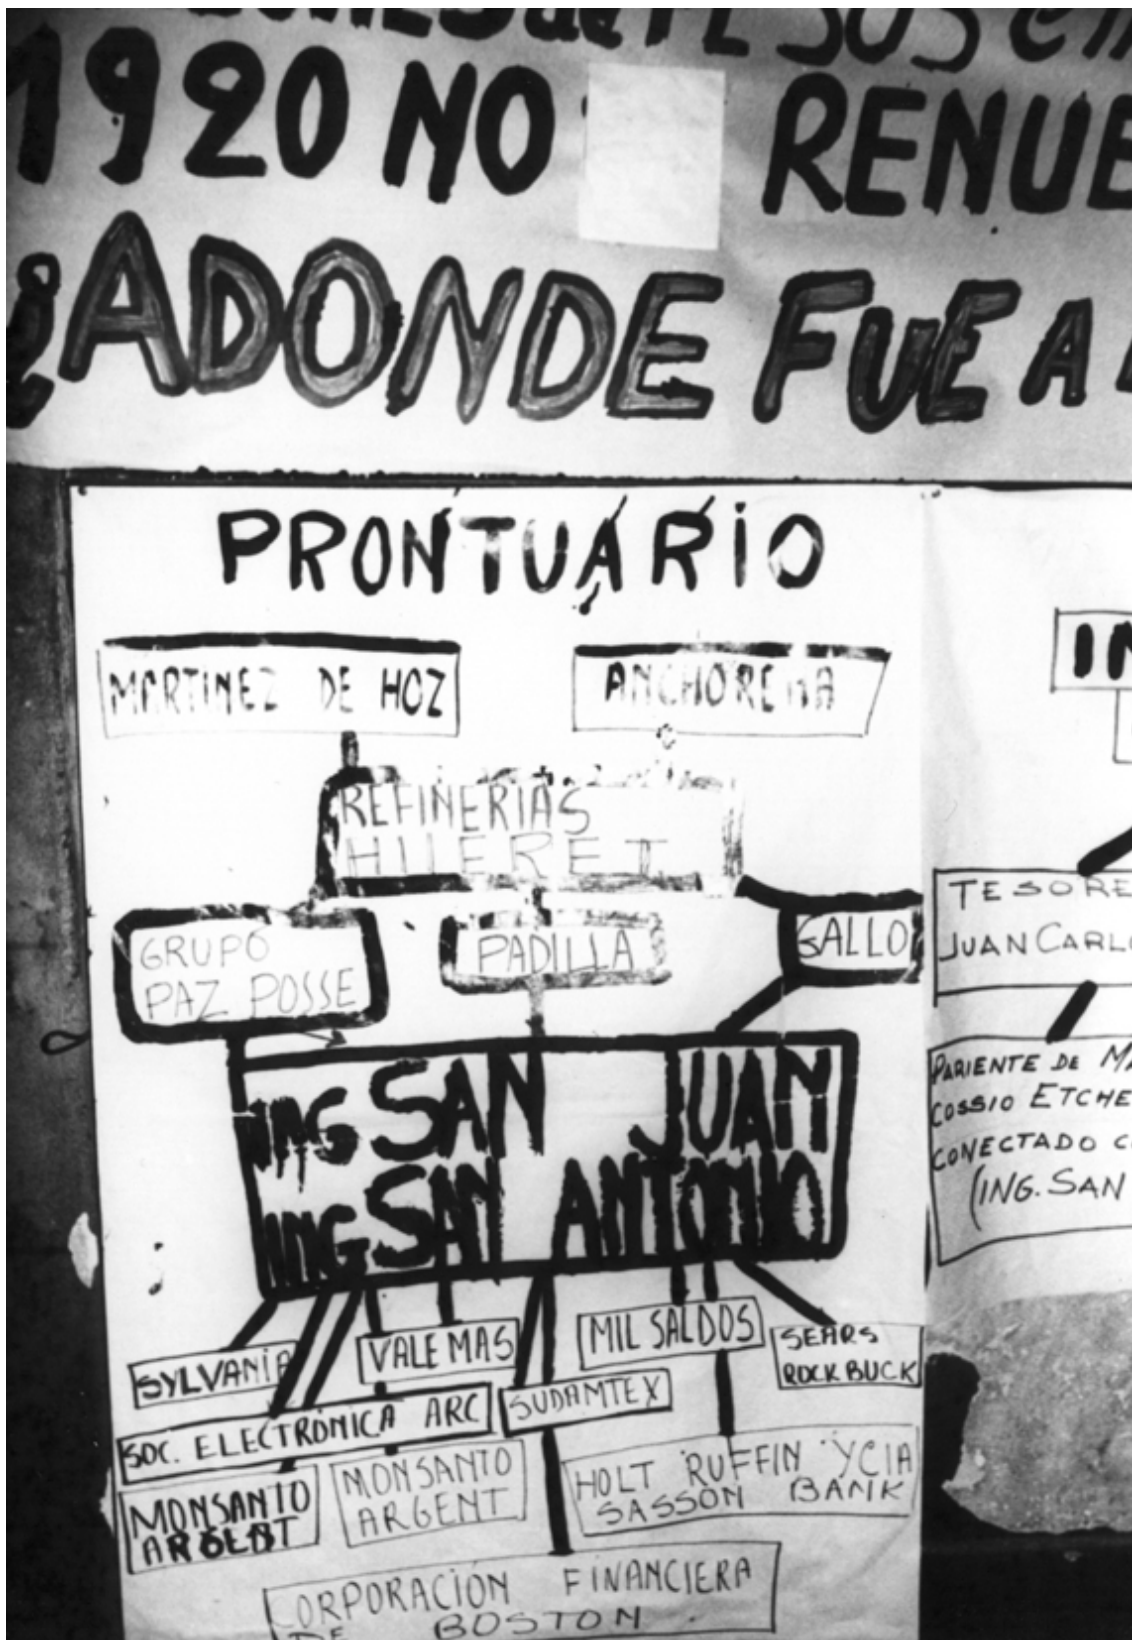 PESOS en
1920 NO RENUE
¿ADONDE FUE A
PRONTUARIO
MARTINEZ DE HOZ
ANCHORENA
REFINERIAS
HILERET
GRUPO
PAZ POSSE
PADILLA
GALLO
ING SAN JUAN
ING SAN ANTONIO
SYLVANIA
VALE MAS
MIL SALDOS
SEARS
ROCKBUCK
SOC. ELECTRÓNICA ARC
SUDAMTEX
MONSANTO
ARGENT
MONSANTO
ARGENT
HOLT RUFFIN Y CIA
SASSON BANK
CORPORACIÓN FINANCIERA
DE BOSTON
IN
TESORE
JUAN CARLO
PARIENTE DE MA
COSSIO ETCHE
CONECTADO C
(ING. SAN